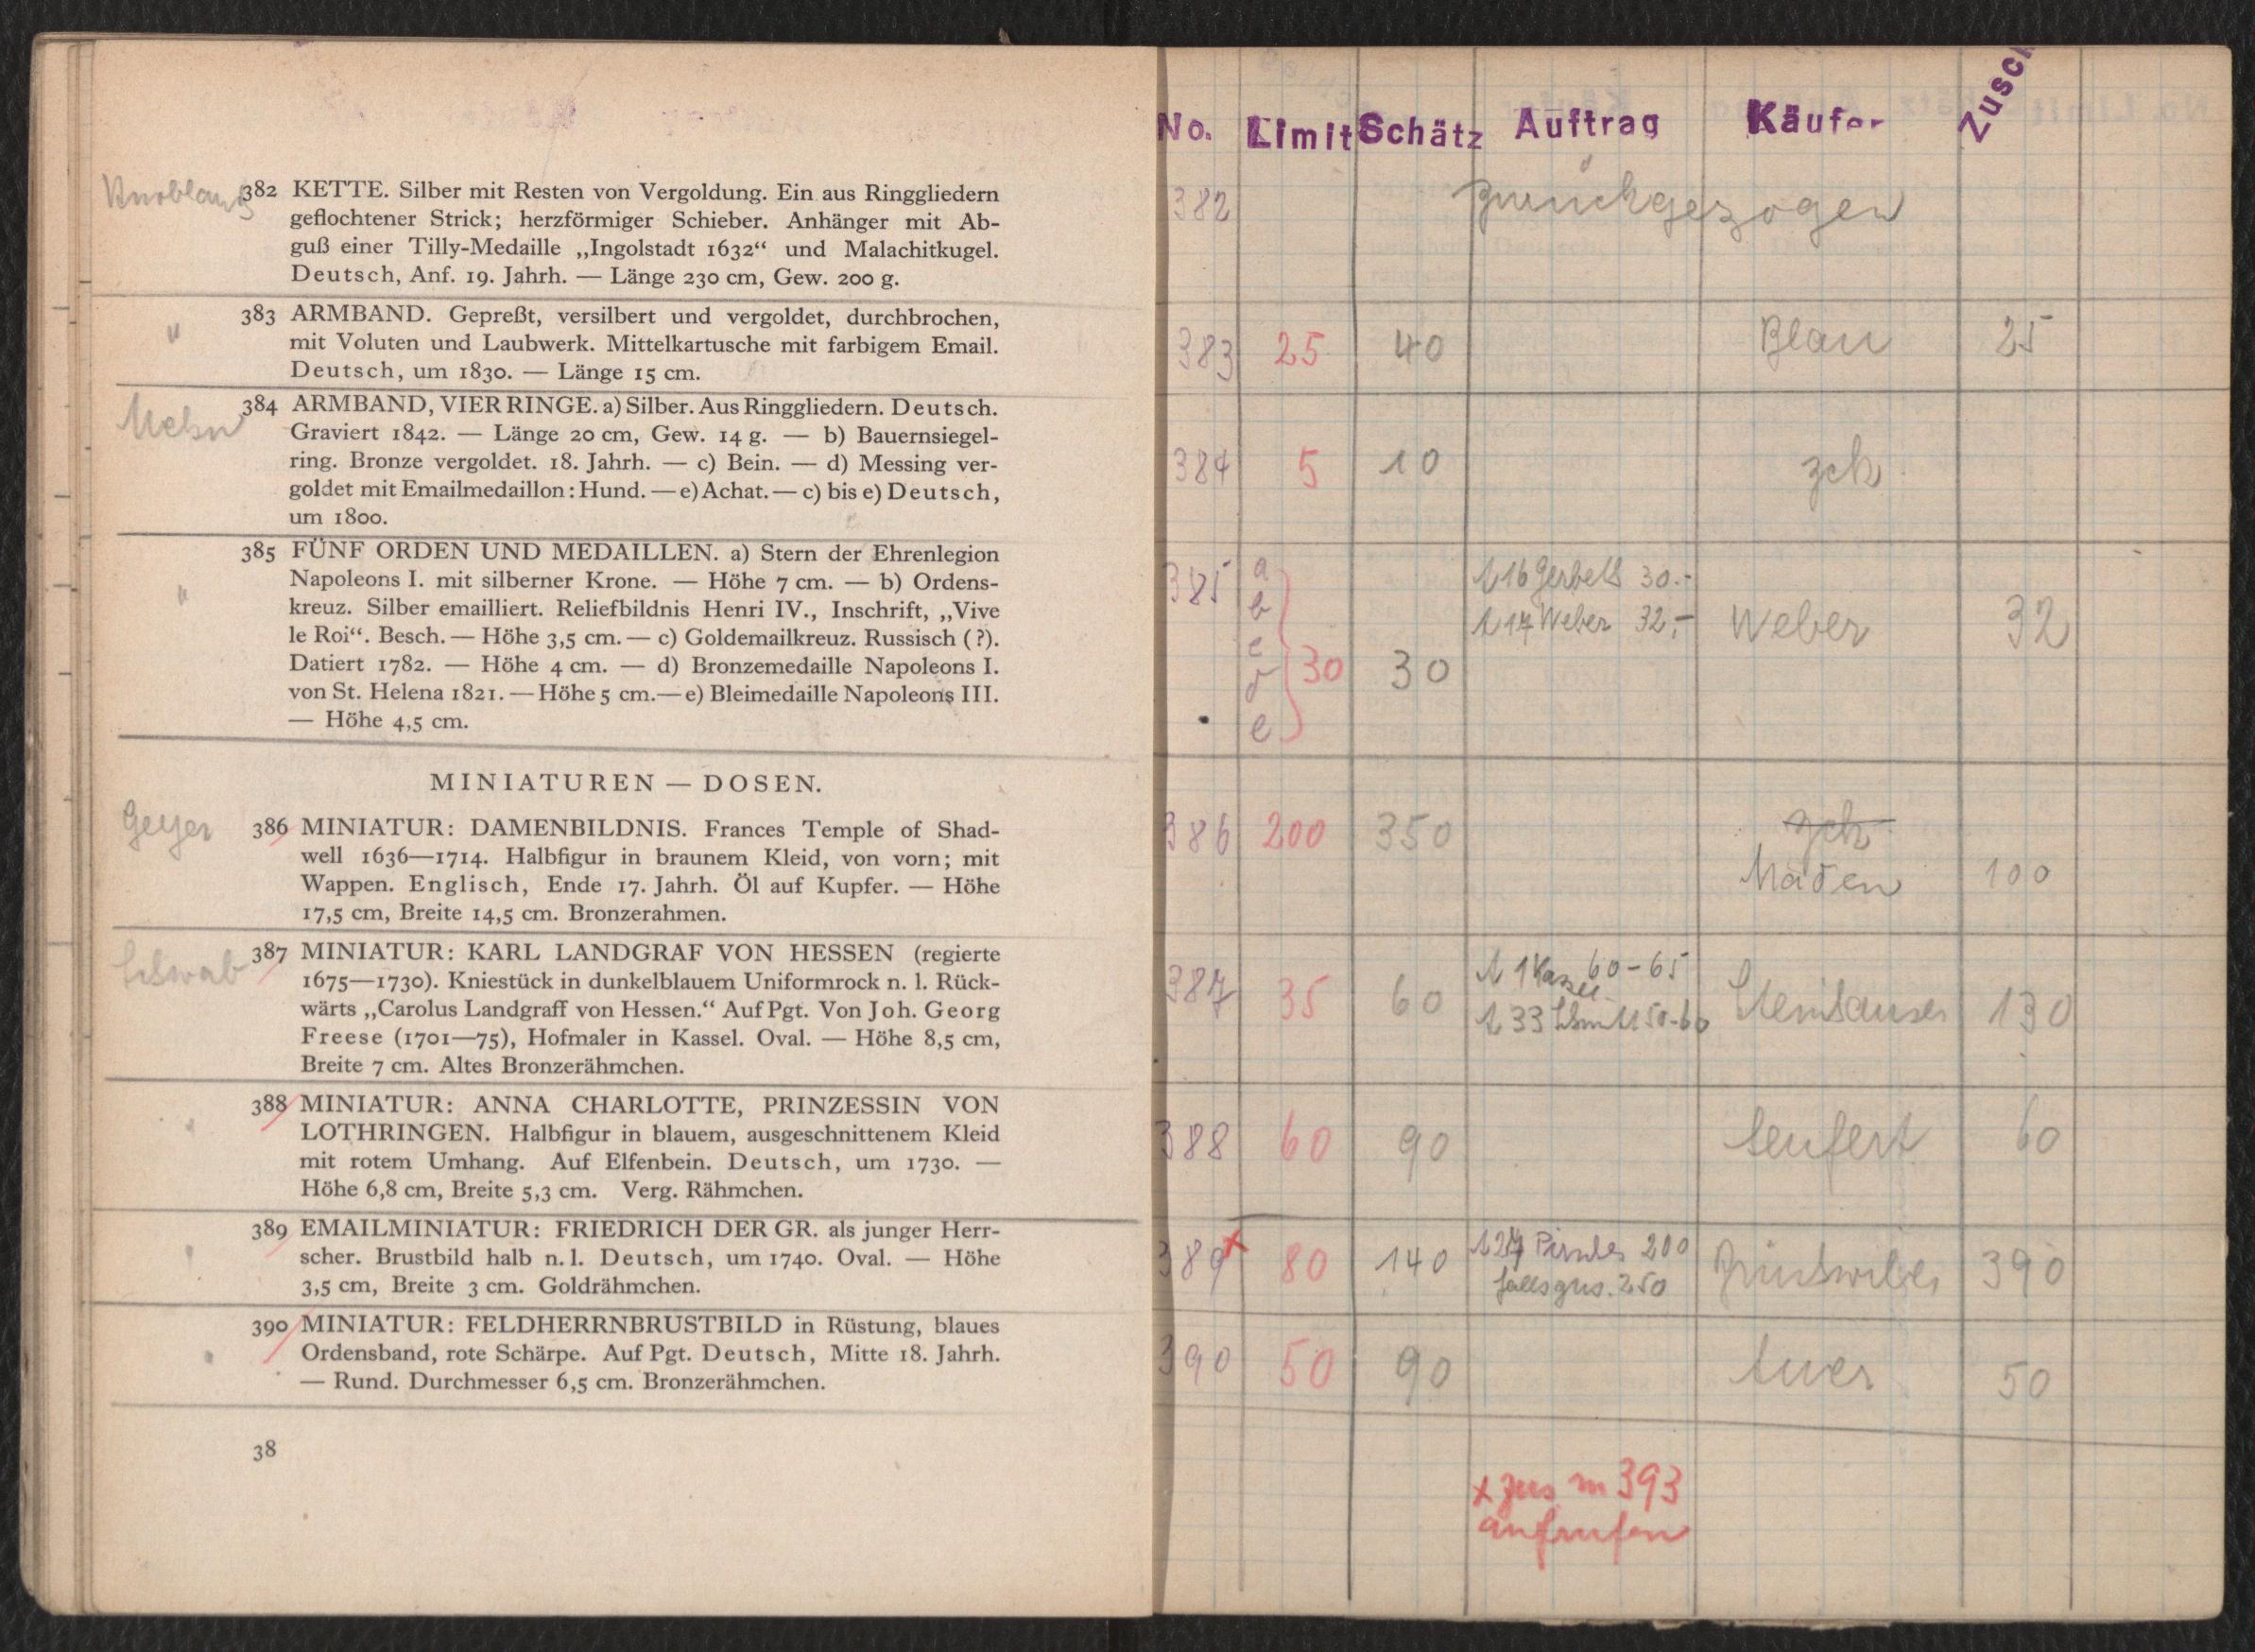 Knoblauch 382 KETTE. Silber mit Resten von Vergoldung. Ein aus Ringgliedern
geflochtener Strick; herzförmiger Schieber. Anhänger mit Ab-
guß einer Tilly-Medaille „Ingolstadt 1632“ und Malachitkugel.
Deutsch, Anf. 19. Jahrh. — Länge 230 cm, Gew. 200 g.
" 383 ARMBAND. Gepreßt, versilbert und vergoldet, durchbrochen,
mit Voluten und Laubwerk. Mittelkartusche mit farbigem Email.
Deutsch, um 1830. — Länge 15 cm.
384 ARMBAND, VIER RINGE. a) Silber. Aus Ringgliedern. Deutsch.
Graviert 1842. — Länge 20 cm, Gew. 14 g. — b) Bauernsiegel-
ring. Bronze vergoldet. 18. Jahrh. — c) Bein. — d) Messing ver-
goldet mit Emailmedaillon: Hund. — e) Achat. — c) bis e) Deutsch,
um 1800.
385 FÜNF ORDEN UND MEDAILLEN. a) Stern der Ehrenlegion
Napoleons I. mit silberner Krone. — Höhe 7 cm. — b) Ordens-
" kreuz. Silber emailliert. Reliefbildnis Henri IV., Inschrift, „Vive
le Roi“. Besch. — Höhe 3,5 cm. — c) Goldemailkreuz. Russisch (?).
Datiert 1782. — Höhe 4 cm. — d) Bronzemedaille Napoleons I.
von St. Helena 1821. — Höhe 5 cm. — e) Bleimedaille Napoleons III.
— Höhe 4,5 cm.
MINIATUREN — DOSEN.
Geyer 386 MINIATUR: DAMENBILDNIS. Frances Temple of Shad-
well 1636—1714. Halbfigur in braunem Kleid, von vorn; mit
Wappen. Englisch, Ende 17. Jahrh. Öl auf Kupfer. — Höhe
17,5 cm, Breite 14,5 cm. Bronzerahmen.
Schwab 387 MINIATUR: KARL LANDGRAF VON HESSEN (regierte
1675—1730). Kniestück in dunkelblauem Uniformrock n. l. Rück-
wärts „Carolus Landgraff von Hessen.“ Auf Pgt. Von Joh. Georg
Freese (1701—75), Hofmaler in Kassel. Oval. — Höhe 8,5 cm,
Breite 7 cm. Altes Bronzerähmchen.
388 MINIATUR: ANNA CHARLOTTE, PRINZESSIN VON
LOTHRINGEN. Halbfigur in blauem, ausgeschnittenem Kleid
mit rotem Umhang. Auf Elfenbein. Deutsch, um 1730. —
Höhe 6,8 cm, Breite 5,3 cm. Verg. Rähmchen.
389 EMAILMINIATUR: FRIEDRICH DER GR. als junger Herr-
scher. Brustbild halb n. l. Deutsch, um 1740. Oval. — Höhe
3,5 cm, Breite 3 cm. Goldrähmchen.
390 MINIATUR: FELDHERRNBRUSTBILD in Rüstung, blaues
Ordensband, rote Schärpe. Auf Pgt. Deutsch, Mitte 18. Jahrh.
— Rund. Durchmesser 6,5 cm. Bronzerähmchen.
38
No. Limit Schätz Auftrag Käufer Zusch
382 Zurückgezogen
383 25 40 Blau 25
384 5 10 zch
385 a b c d e 30 30
16 Gerbels 30.-
17 Weber 32,- Weber 32
386 200 350 zch
Mäden 100
387 35 60 1 Kassel 60-65
33 50-60 130
388 60 90 Seufert 60
389 x 80 140 200
falls zus. 250 390
390 50 90 Auer 50
x zus m 393
aufrufen